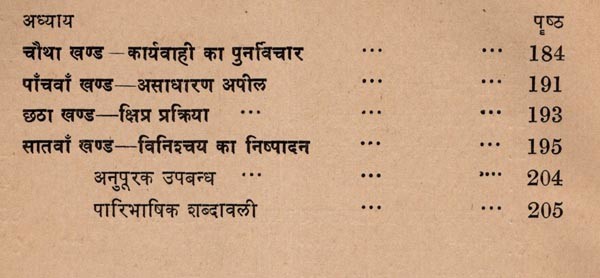 अध्याय पृष्ठ
चौथा खण्ड—कार्यवाही का पुनर्विचार ... ... 184
पाँचवाँ खण्ड—असाधारण अपील ... ... 191
छठा खण्ड—क्षिप्र प्रक्रिया ... ... ... 193
सातवाँ खण्ड—विनिश्चय का निष्पादन ... ... 195
अनुपूरक उपबन्ध ... ... .... 204
पारिभाषिक शब्दावली ... ... 205